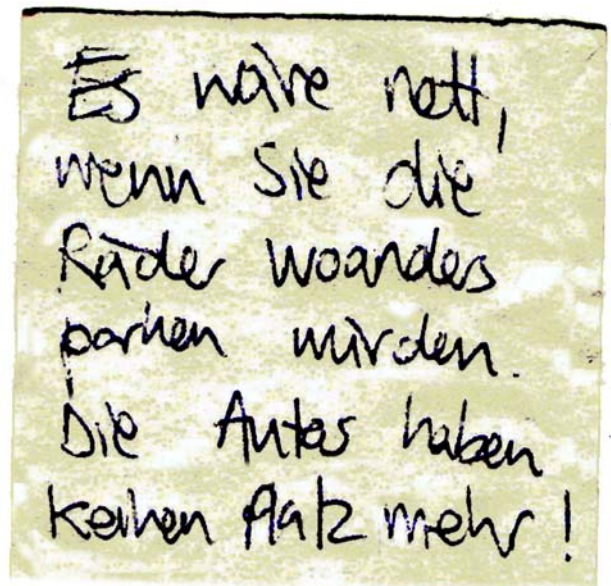 Es wäre nett,
wenn Sie die
Räder woanders
parken würden.
Die Autos haben
keinen Platz mehr!